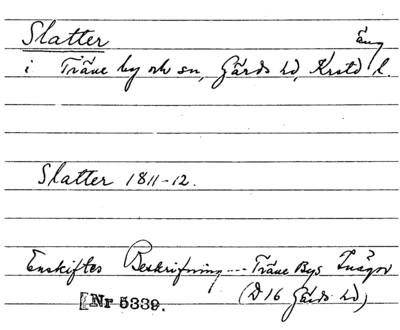 Slatter äng
i Träne by och sn, Gärds hd, Krstd l.
Slatter 1811-12.
Enskiftes Beskrifning --- Träne Bys Inägor
[Nr 5339. (D 16 Gärds hd)